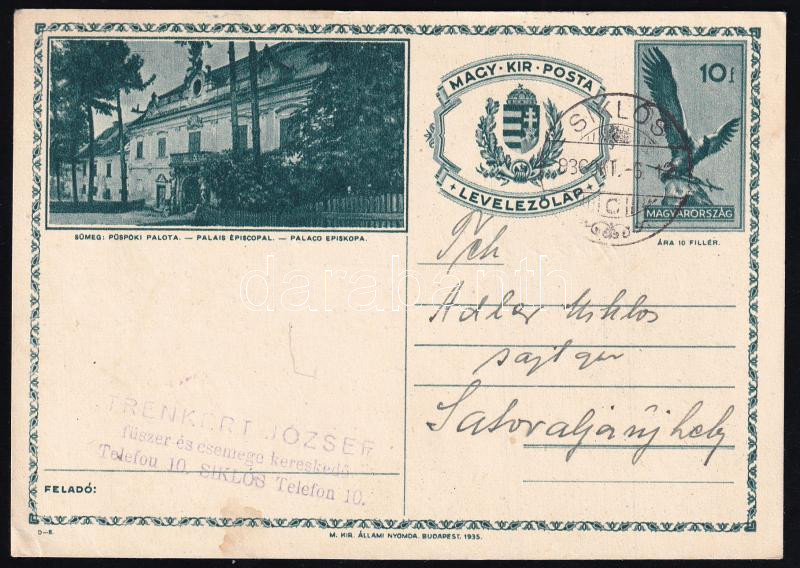 MAGY · KIR · POSTA
LEVELEZŐLAP
10 f
MAGYARORSZÁG
SIKLÓS
SÜMEG: PÜSPÖKI PALOTA. — PALAIS ÉPISCOPAL. — PALACO EPISKOPA.
ÁRA 10 FILLÉR.
Adler Miklós
Satoraljaújhely
darabanth
TRENKERT JÓZSEF
füszer és csemege kereskedő
Telefon 10. SIKLÓS Telefon 10.
FELADÓ:
D—8.
M. KIR. ÁLLAMI NYOMDA. BUDAPEST. 1935.